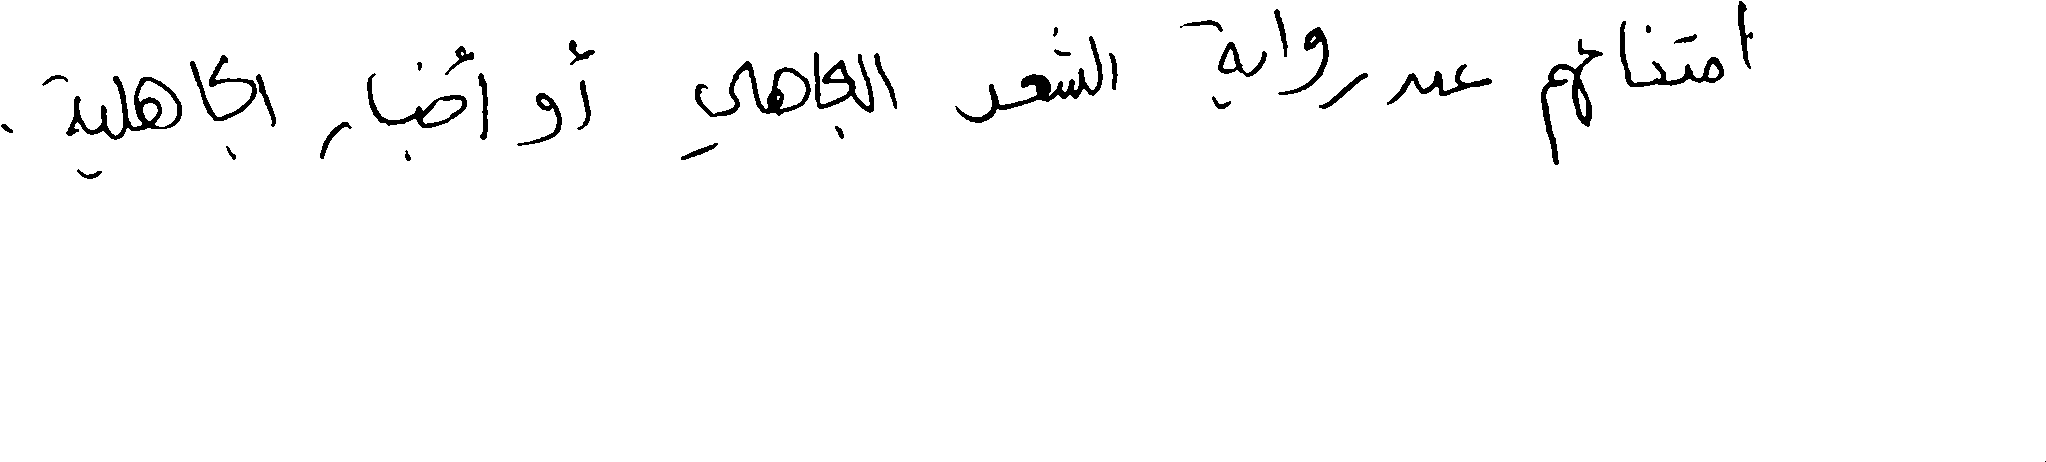 امتناعهم عن رواية الشعر الجاهلي أو أخبار الجاهلية .